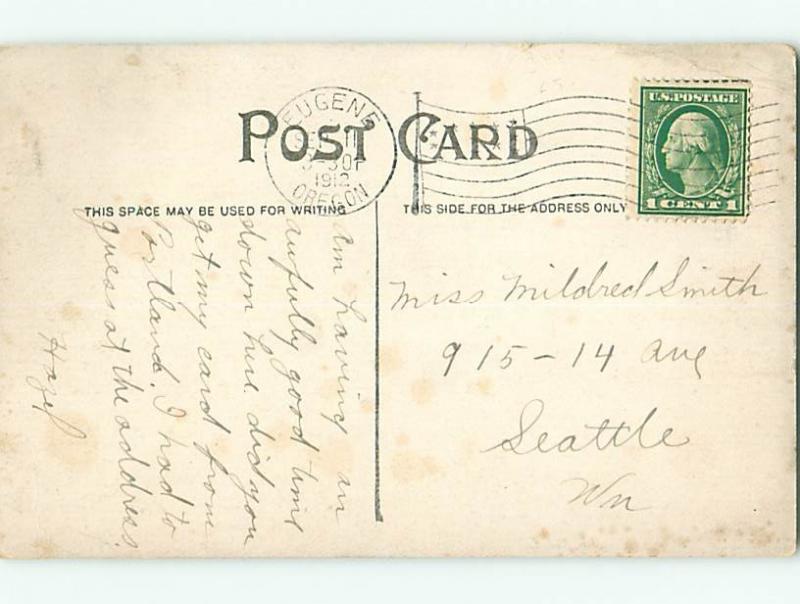 POST CARD
EUGENE
1912
OREGON
U.S. POSTAGE
1 CENT 1
THIS SPACE MAY BE USED FOR WRITING
THIS SIDE FOR THE ADDRESS ONLY
Am having an
awfully good time
down here. did you
get my card from
Portland. I had to
guess at the address.
Hazel
Miss Mildred Smith
915-14 Ave
Seattle
Wn